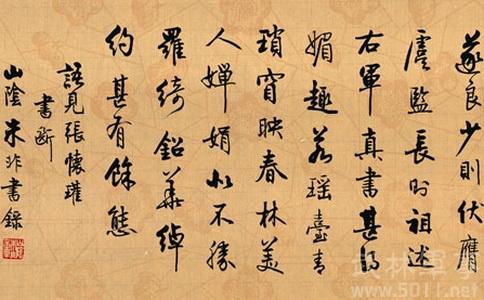 遂良少則伏膺
虞監長則祖述
右軍真書甚得
媚趣若瑶臺青
瑣窅映春林美
人嬋娟似不勝
羅綺鉛華綽
約甚有餘態
語見張懷瓘
書斷
山陰朱非書錄
武林軍事
www.5011.net